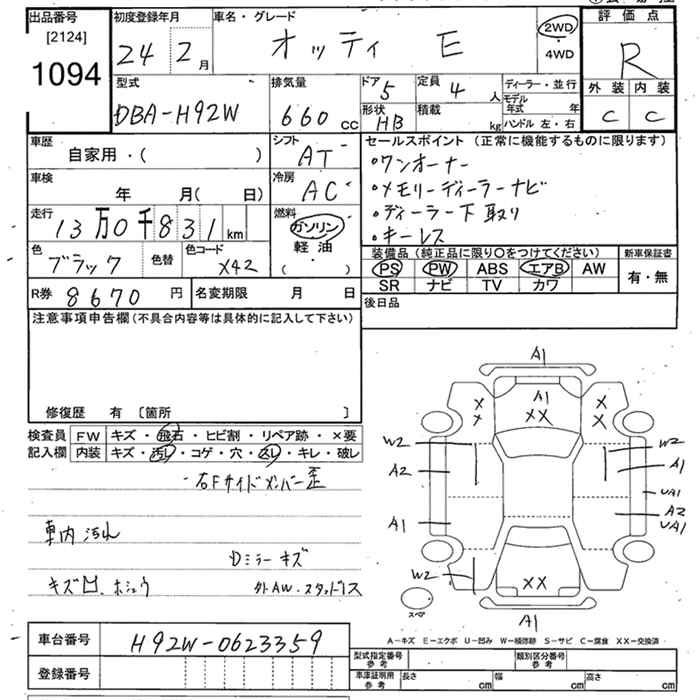 出品番号
[2124]
1094
初度登録年月
24 2月
車名・グレード
オッティ E
2WD
・
4WD
評価点
R
外装 内装
C C
型式
DBA-H92W
排気量
660 cc
ドア 5
定員 4 人
形状 HB
積載 kg
ディーラー・並行
モデル年式 年
ハンドル 左・右
車歴
自家用・( )
シフト
AT
車検
年 月( 日)
冷房
AC
走行
13万0千831 km
燃料
ガソリン
軽油
( )
色
ブラック
色替
色コード
X42
セールスポイント (正常に機能するものに限ります)
・ワンオーナー
・メモリーディーラーナビ
・ディーラー下取り
・キーレス
装備品 (純正品に限り〇をつけてください)
PS PW ABS エアB AW
SR ナビ TV カワ
新車保証書
有・無
R券 8670 円
名変期限 月 日
後日品
注意事項申告欄 (不具合内容等は具体的に記入して下さい)
修復歴 有 [箇所 ]
検査員記入欄
FW キズ・飛石・ヒビ割・リペア跡・×要
内装 キズ・汚レ・コゲ・穴・スレ・キレ・破レ
右Fサイドメンバー歪
車内汚れ
Dミラーキズ
キズ凹、ホシュウ
外AW・スタッドレス
A1
A1
XX
X X
X X
W2
W2
A2
A1
UA1
A1
A2
UA1
W2
XX
A1
スペア
A-キズ E-エクボ U-凹み W-補修跡 S-サビ C-腐食 XX-交換済
車台番号
H92W-0623359
登録番号
型式指定番号
参考
類別区分番号
参考
車庫証明用
参考
長さ cm
幅 cm
高さ cm